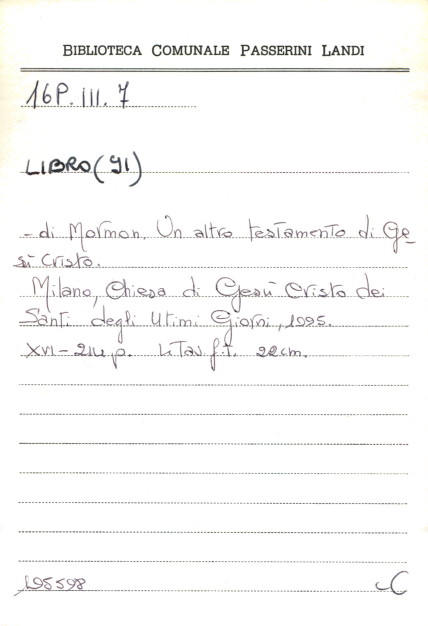 BIBLIOTECA COMUNALE PASSERINI LANDI
16P. III. 7
LIBRO (Il)
- di Mormon. Un altro testamento di Ge
sù Cristo.
Milano, Chiesa di Gesù Cristo dei
Santi degli Utimi Giorni, 1995.
XVI - p. Tav. f.t. 22 cm.
195598
C